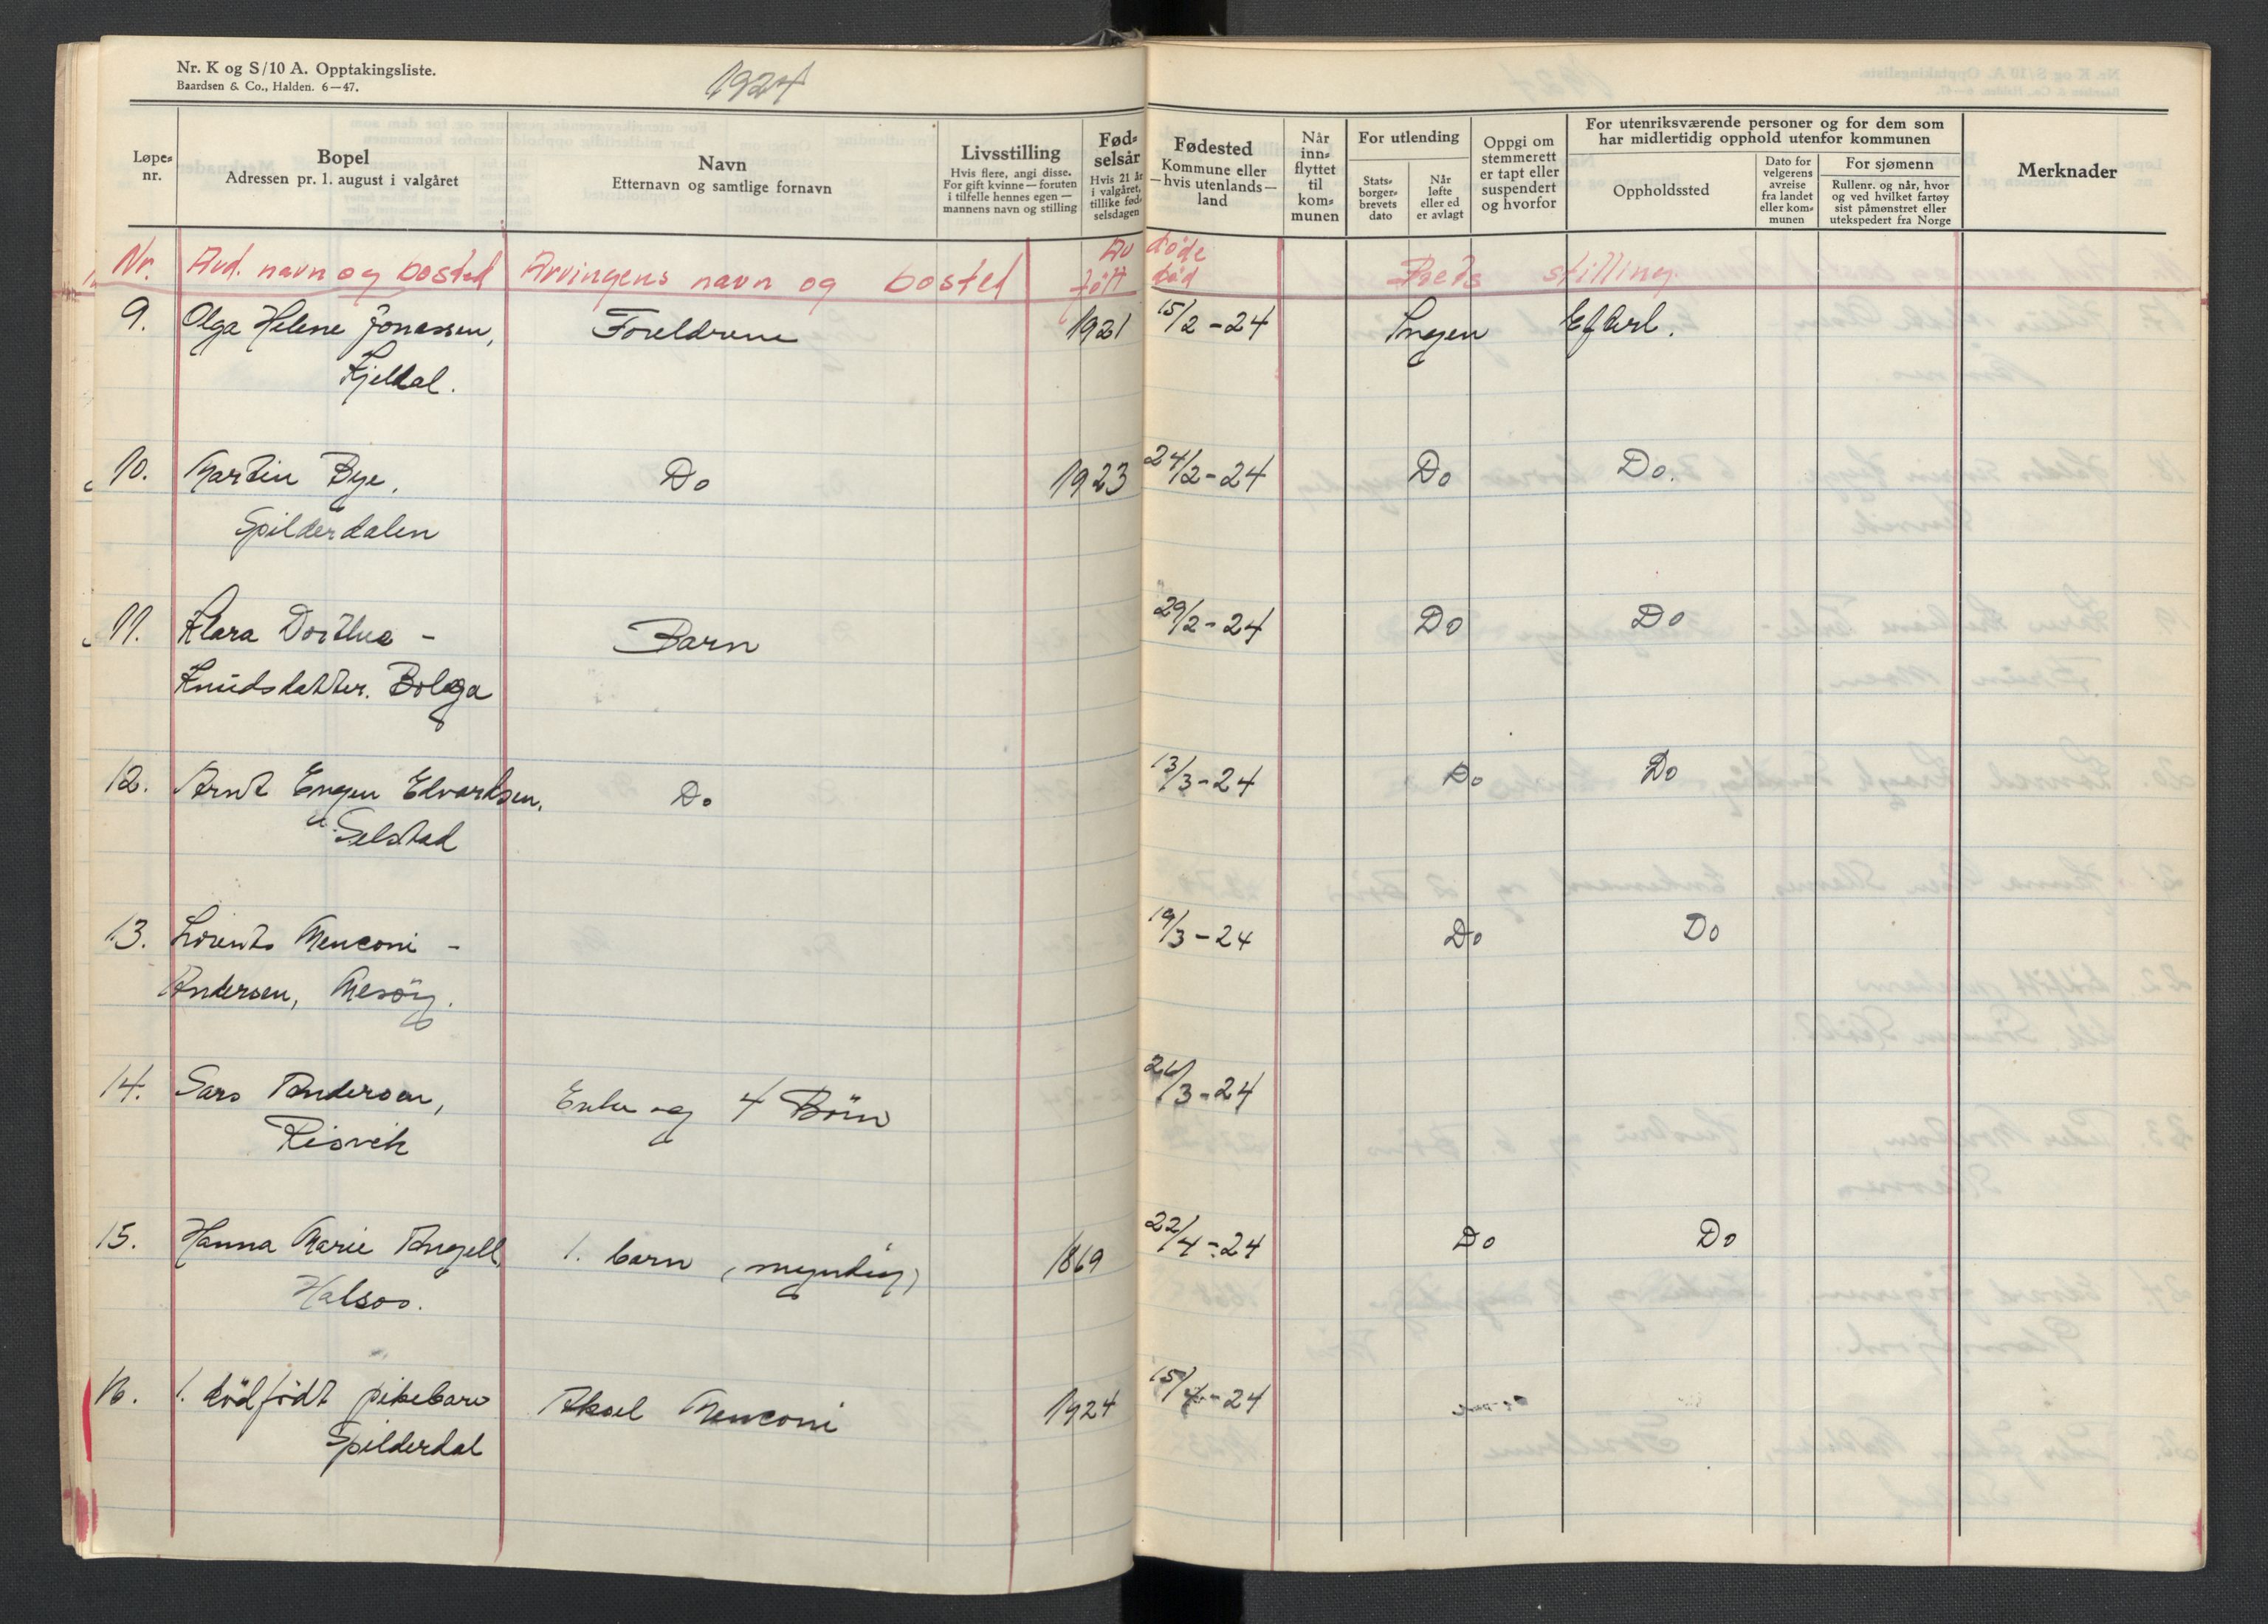 Nr. K og S/10 A. Opptakingsliste.
Baardsen & Co., Halden. 6—47.
1924
Løpe-
nr.
Bopel
Adressen pr. 1. august i valgåret
Navn
Etternavn og samtlige fornavn
Livsstilling
Hvis flere, angi disse.
For gift kvinne — foruten
i tilfelle hennes egen —
mannens navn og stilling
Fød-
selsår
Hvis 21 år
i valgåret,
tillike fød-
selsdagen
Fødested
Kommune eller
—hvis utenlands—
land
Når
inn-
flyttet
til
kom-
munen
For utlending
Stats-
borger-
brevets
dato
Når
løfte
eller ed
er avlagt
Oppgi om
stemmerett
er tapt eller
suspendert
og hvorfor
For utenriksværende personer og for dem som
har midlertidig opphold utenfor kommunen
Oppholdssted
Dato for
velgerens
avreise
fra landet
eller kom-
munen
For sjømenn
Rullenr. og når, hvor
og ved hvilket fartøy
sist påmønstret eller
utekspedert fra Norge
Merknader
Av døde
Nr. Avd. navn og bosted Arvingens navn og bosted født død Boets stilling.
9. Olga Helene Jonassen, Foreldrene 1921 15/2-24 Ingen Efterl.
Kjeldal.
10. Martin Bye, Do 1923 24/2-24 Do Do.
Spilderdalen
11. Klara Dorthea - Barn 29/2-24 Do Do
Knudsdatter. Bolga
12. Arnt Engen Edvardsen, Do 13/3-24 Do Do
Selstad
13. Lorents Menconi - 19/3-24 Do Do
Andersen, Mesöy.
14. Lars Andersen, Enke og 4 Börn 26/3-24
Risvik
15. Hanna Marie Angell, 1. barn (myndig) 1869 22/4-24 Do Do
Halsos.
16. 1. dödfödt pikebarn Aksel Menconi 1924 15/4-24
Spilderdal